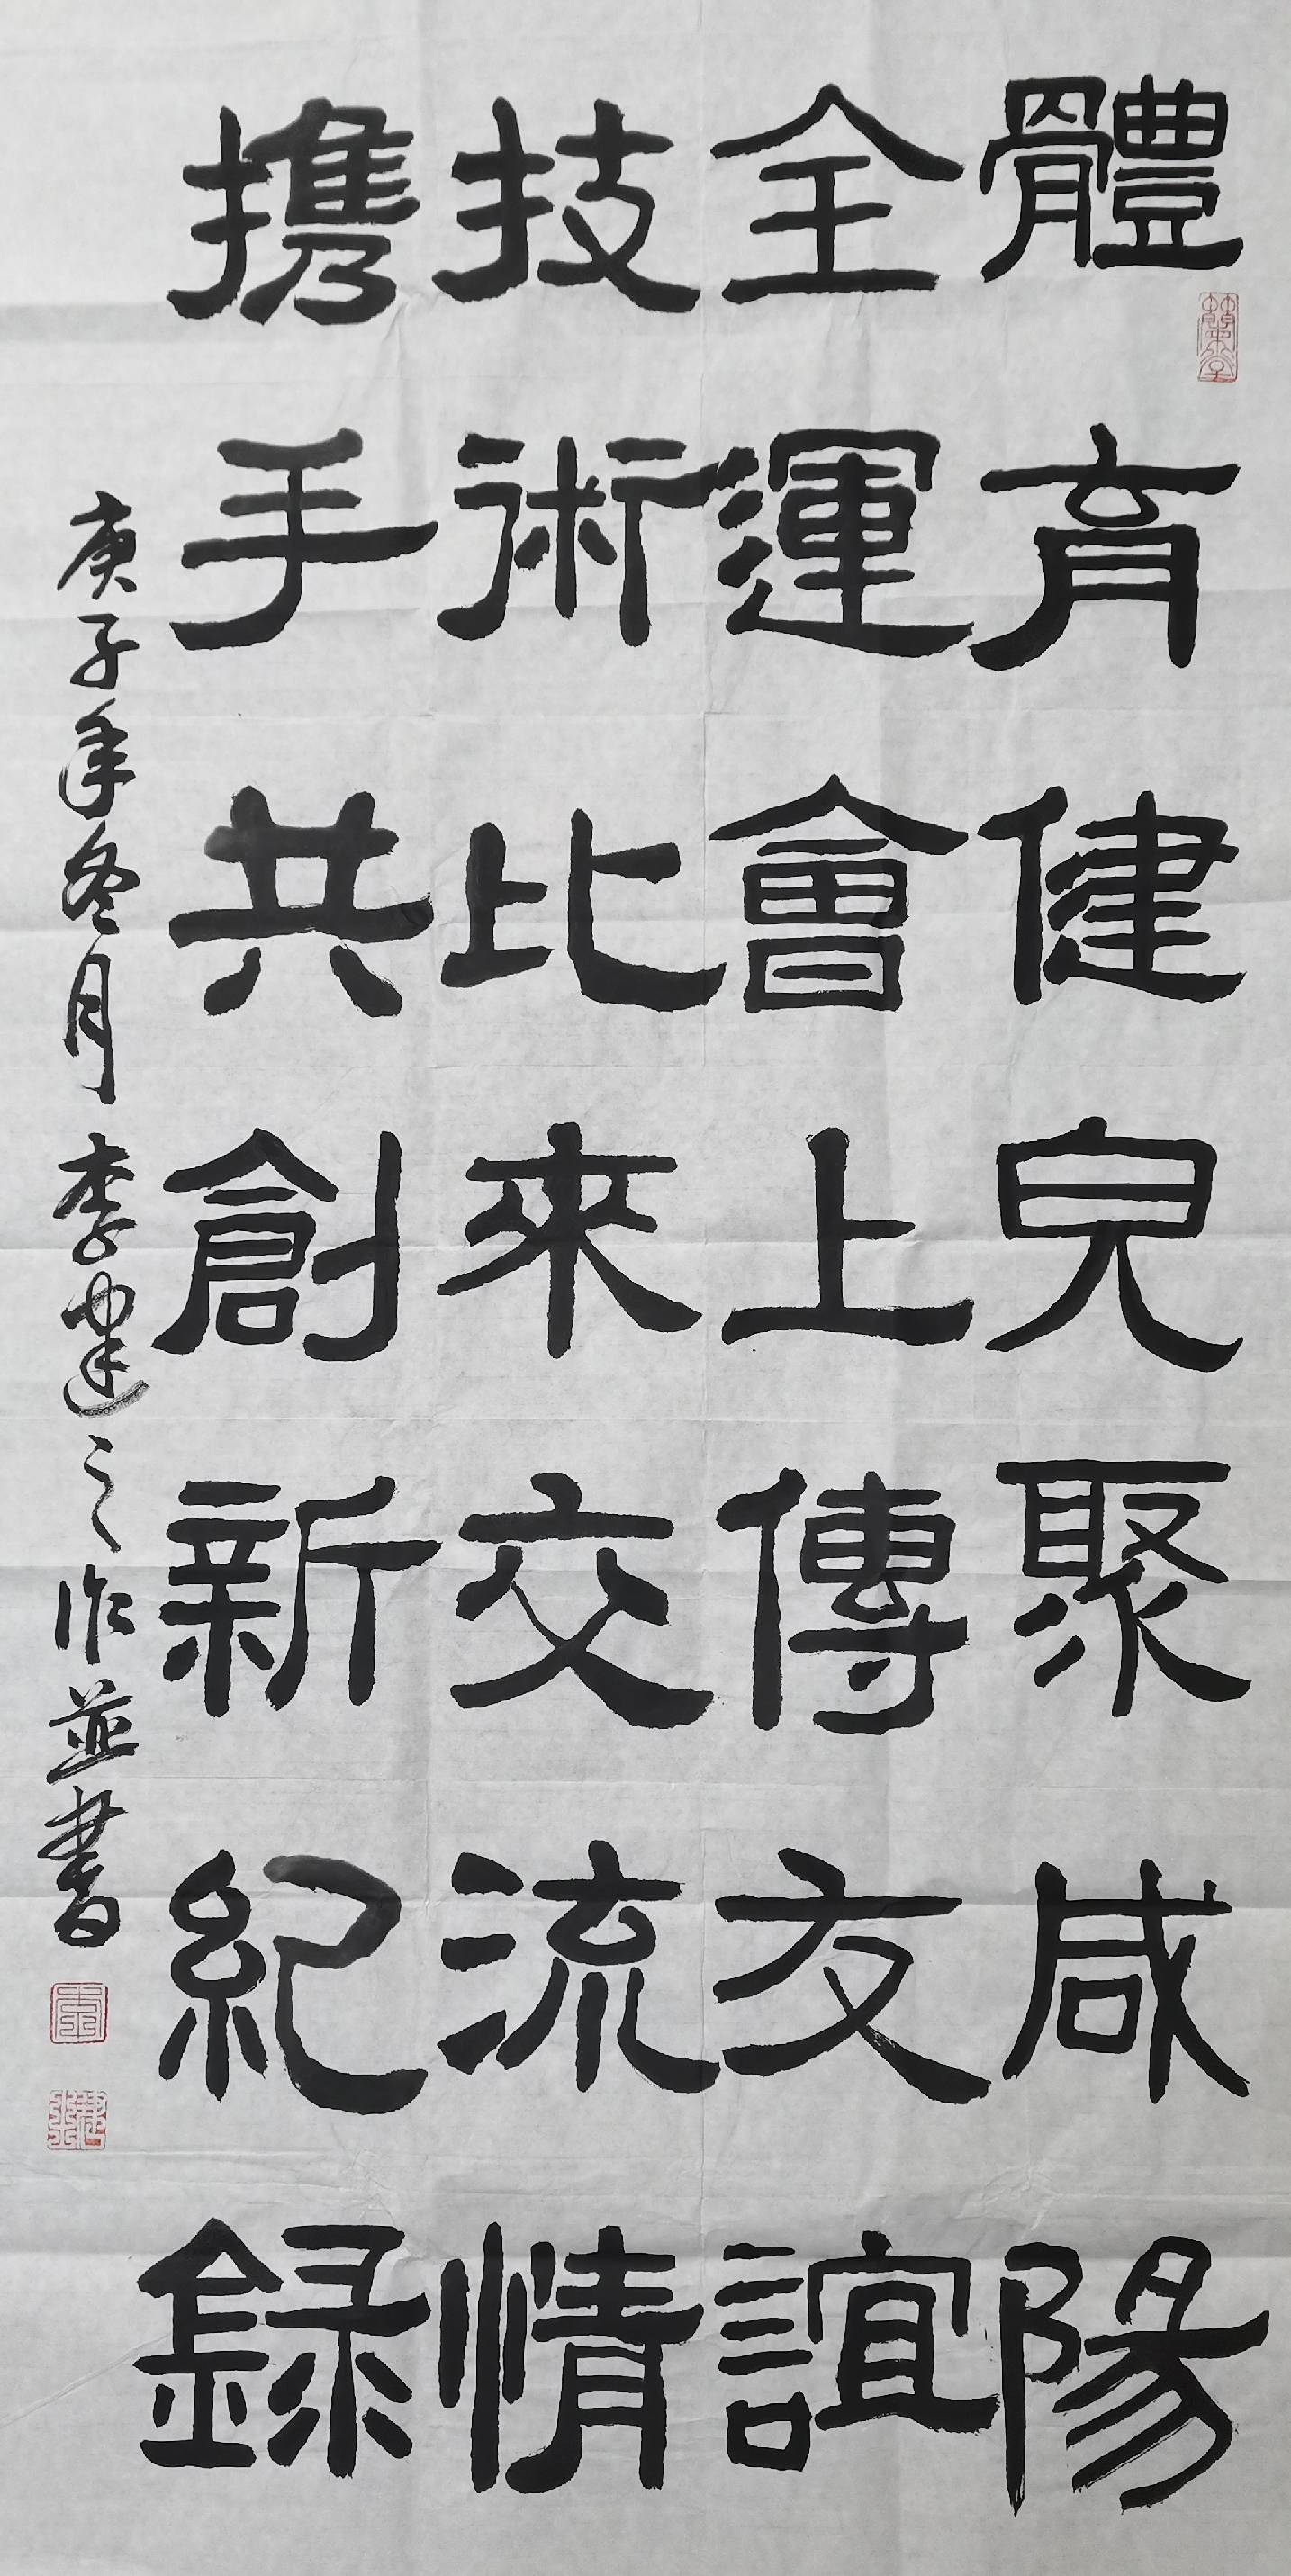 體育健皃聚咸陽
全運會上傳友誼
技術比來交流情
携手共創新紀録
庚子年冬月李建之作並書